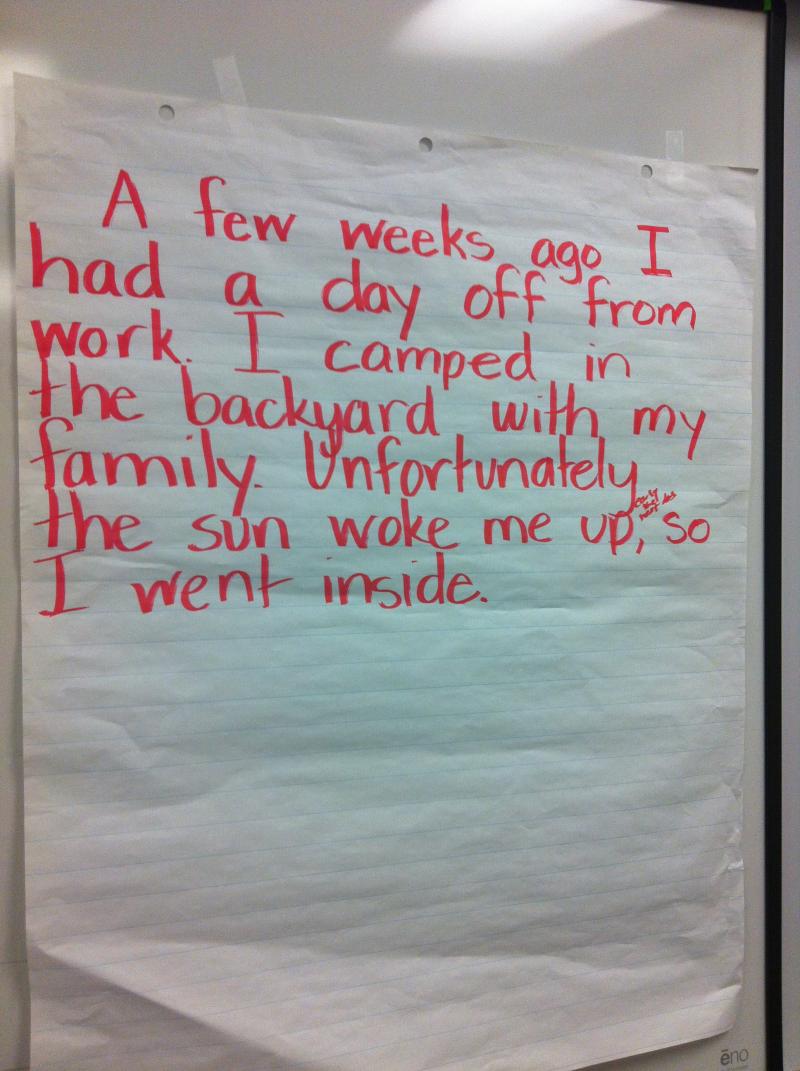 A few weeks ago I
had a day off from
work. I camped in
the backyard with my
family. Unfortunately
early
the
next day
the sun woke me up, so
I went inside.
ēno